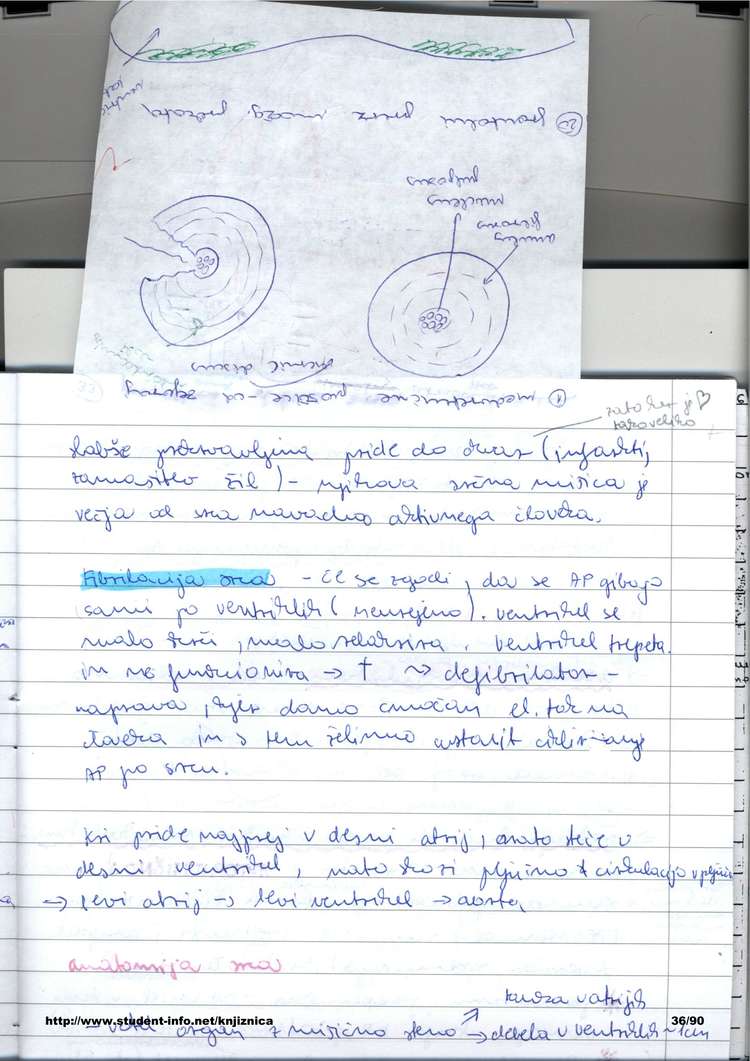 ② frontalni prerez
annulus fibrosus
nucleus pulposus
① medvretenčne ploščice – od zgoraj
zato ker je ♡
tako veliko
slabše prekrvavljena pride do okvar (infarkti,
zamašitev žil) – njihova srčna mišica je
večja od srca navadnega aktivnega človeka.
Fibrilacija srca – če se zgodi, da se AP gibajo
sami po ventriklih (neurejeno). ventrikel se
malo krči, malo relaksira. ventrikel trepeta
in ne funkcionira → † ~> defibrilator –
naprava, kjer damo močan el. tok na
človeka in s tem želimo ustavit
AP po srcu.
Kri pride najprej v desni atrij, nato teče v
desni ventrikel, nato skozi pljučno cirkulacijo v pljuča
→ levi atrij → levi ventrikel → aorta
anatomija srca
v atrijih
– votel organ z mišično steno → debela v ventriklih ~1cm
http://www.student-info.net/knjiznica
36/90